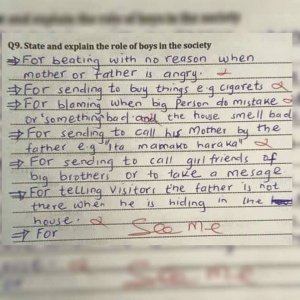 Q9. State and explain the role of boys in the society
⇒ For beating with no reason when
mother or Father is angry. 2
⇒ For sending to buy things e.g cigarets 2
⇒ For blaming when big Person do mistake 2
or 'something bad and the house smell bad
⇒ For sending to call his Mother by the
father e.g "Ita mamako haraka" 2
⇒ For sending to call girl friends of
big brothers or to take a mesage
⇒ For telling Visitors the father is not
there when he is hiding in the
house. 2
⇒ For See Me